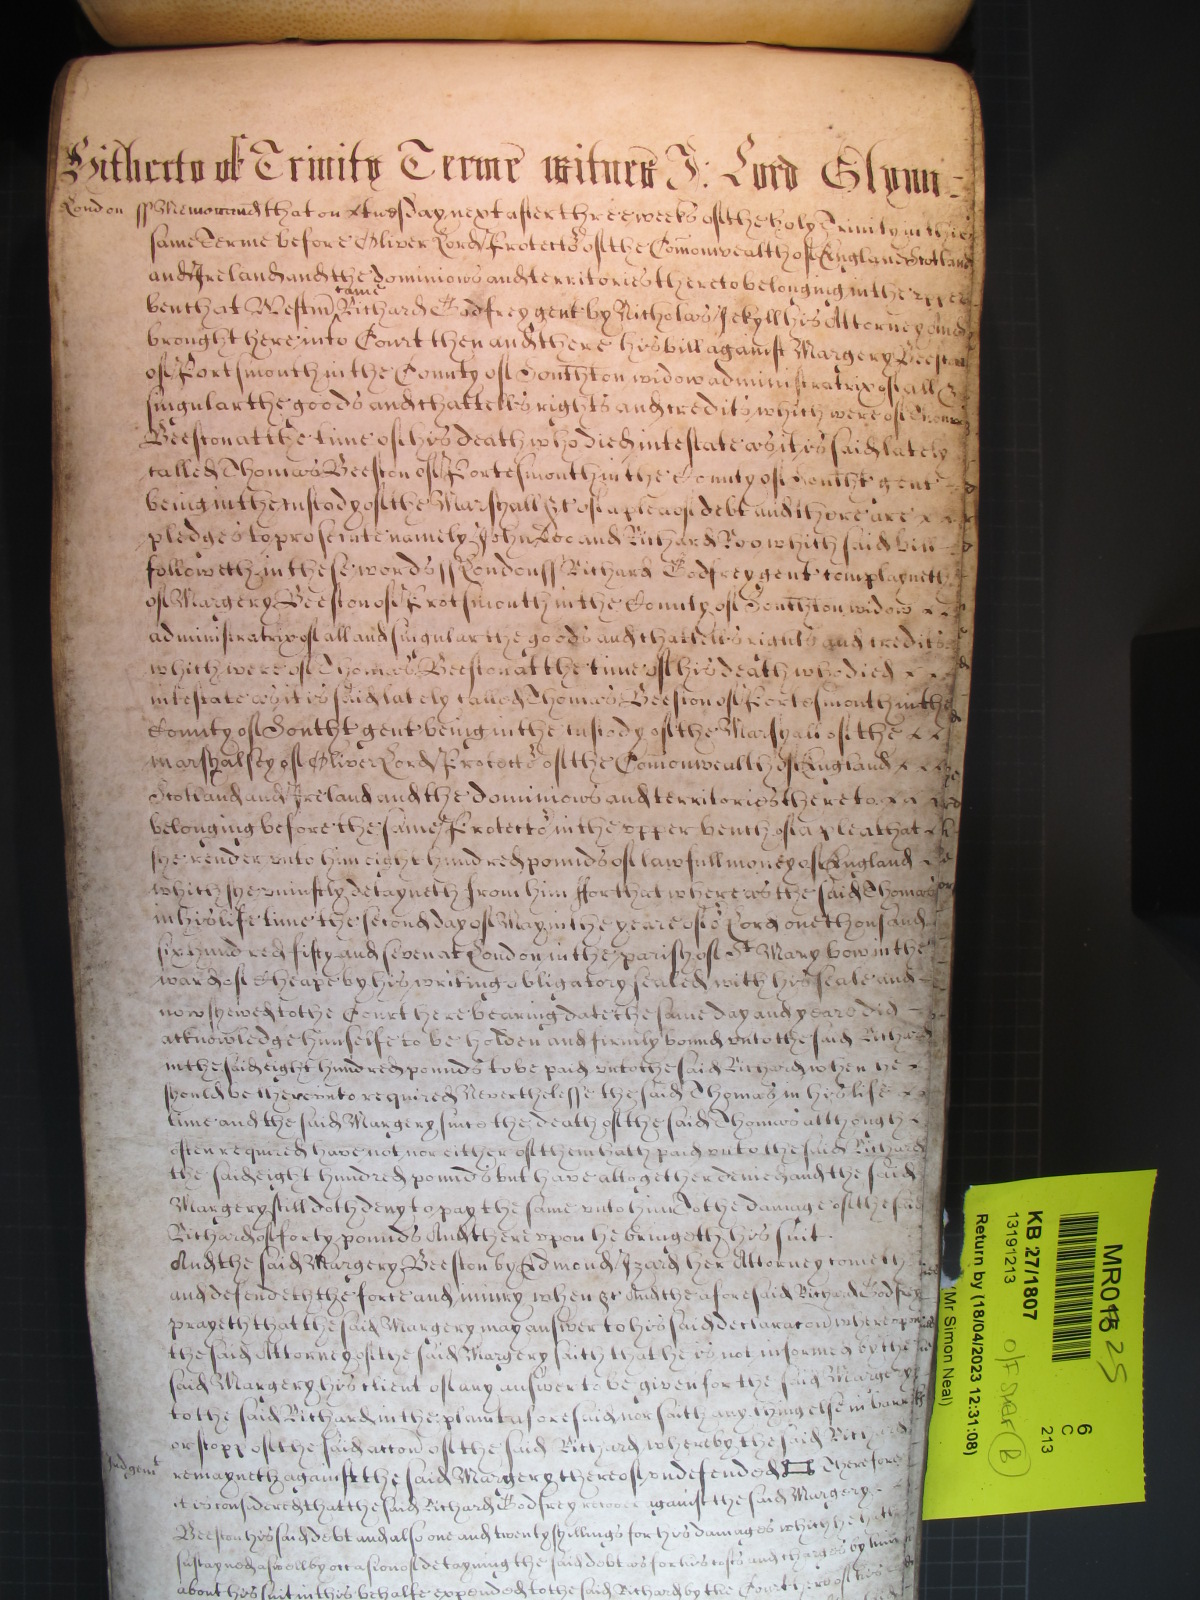 Hitherto of Trinity Terme witnes J: Lord Glynn
London ss Memorand that on Tuesday next after three weekes of the holy Trinity in this
same Terme before Oliver Lord Protector of the Comonwealth of England Scotland
and Ireland and the dominions and territories thereto belonging in the upper
bench at Westm came Richard Godfrey gent by Nicholas Jekyll his Attorney and
brought here into Court then and there his bill against Margery Beeston
of Portsmouth in the County of Southton widow administratrix of all &
singular the goods and chattells rights and credits which were of Thomas
Beeston at the time of his death who died intestate as it is said lately
called Thomas Beeston of Portesmouth in the County of Southt gent
being in the custody of the Marshall &c of a plea of debt and there are
pledges to prosecute namely John Doo and Richard Roo which said bill
followeth in these words ss London ss Richard Godfrey gent complayneth
of Margery Beeston of Protsmouth in the County of Southton widow
administratrix of all and singular the goods and chattells rights and credits
which were of Thomas Beeston at the time of his death who died
intestate as it is said lately called Thomas Beeston of Portesmouth in the
County of Southt gent being in the custody of the Marshall of the
marshalsey of Oliver Lord Protector of the Comonwealth of England
Scotland and Ireland and the dominions and territories thereto
belonging before the same Protector in the upper bench of a plea that
she render unto him eight hundred pounds of lawfull money of England
which she uniustly detayneth from him For that whereas the said Thomas
in his life time the second day of May in the yeare of or Lord one thousand
six hundred fifty and seven at London in the parish of St Mary bow in the
ward of Cheape by his writing obligatory sealed with his seale and
now shewed to the Court here bearing date the same day and yeare did
acknowledge himselfe to be holden and firmly bound unto the said Richard
in the said eight hundred pounds to be paid unto the said Richard when he
should be thereunto required Neverthelesse the said Thomas in his life
time and the said Margery since the death of the said Thomas although
often required have not nor either of them hath paid unto the said Richard
the said eight hundred pounds but have altogether denied and the said
Margery still doth deny to pay the same unto him To the damage of the said
Richard of forty pounds And thereupon he bringeth his suit
And the said Margery Beeston by Edmond Izard her Attorney cometh
and defendeth the force and iniury when &c And the aforesaid Richard Godfrey
prayeth that the said Margery may answer to his said declaracon whereupon
the said Attorney of the said Margery saith that he is not informed by the
said Margery his client of any answer to be given for the said Margery
to the said Richard in the plaint aforesaid nor saith any thing else in barr
or stopp of the said accon of the said Richard whereby the said Richard
Judgemt
remayneth against the said Margery thereof undefended Therefore
it is considered that the said Richard Godfrey recover against the said Margery
Beeston his said debt and also one and twenty shillings for his damages which he hath
sustayned aswell by occasion of detayning the said debt as for his costs and charges by him
about his suit in this behalfe expended to the said Richard by the Court here of his
MR018 25
6
C
213
KB 27/1807
13191213
O/F SHELF (B)
Return by (18/04/2023 12:31:08)
(Mr Simon Neal)